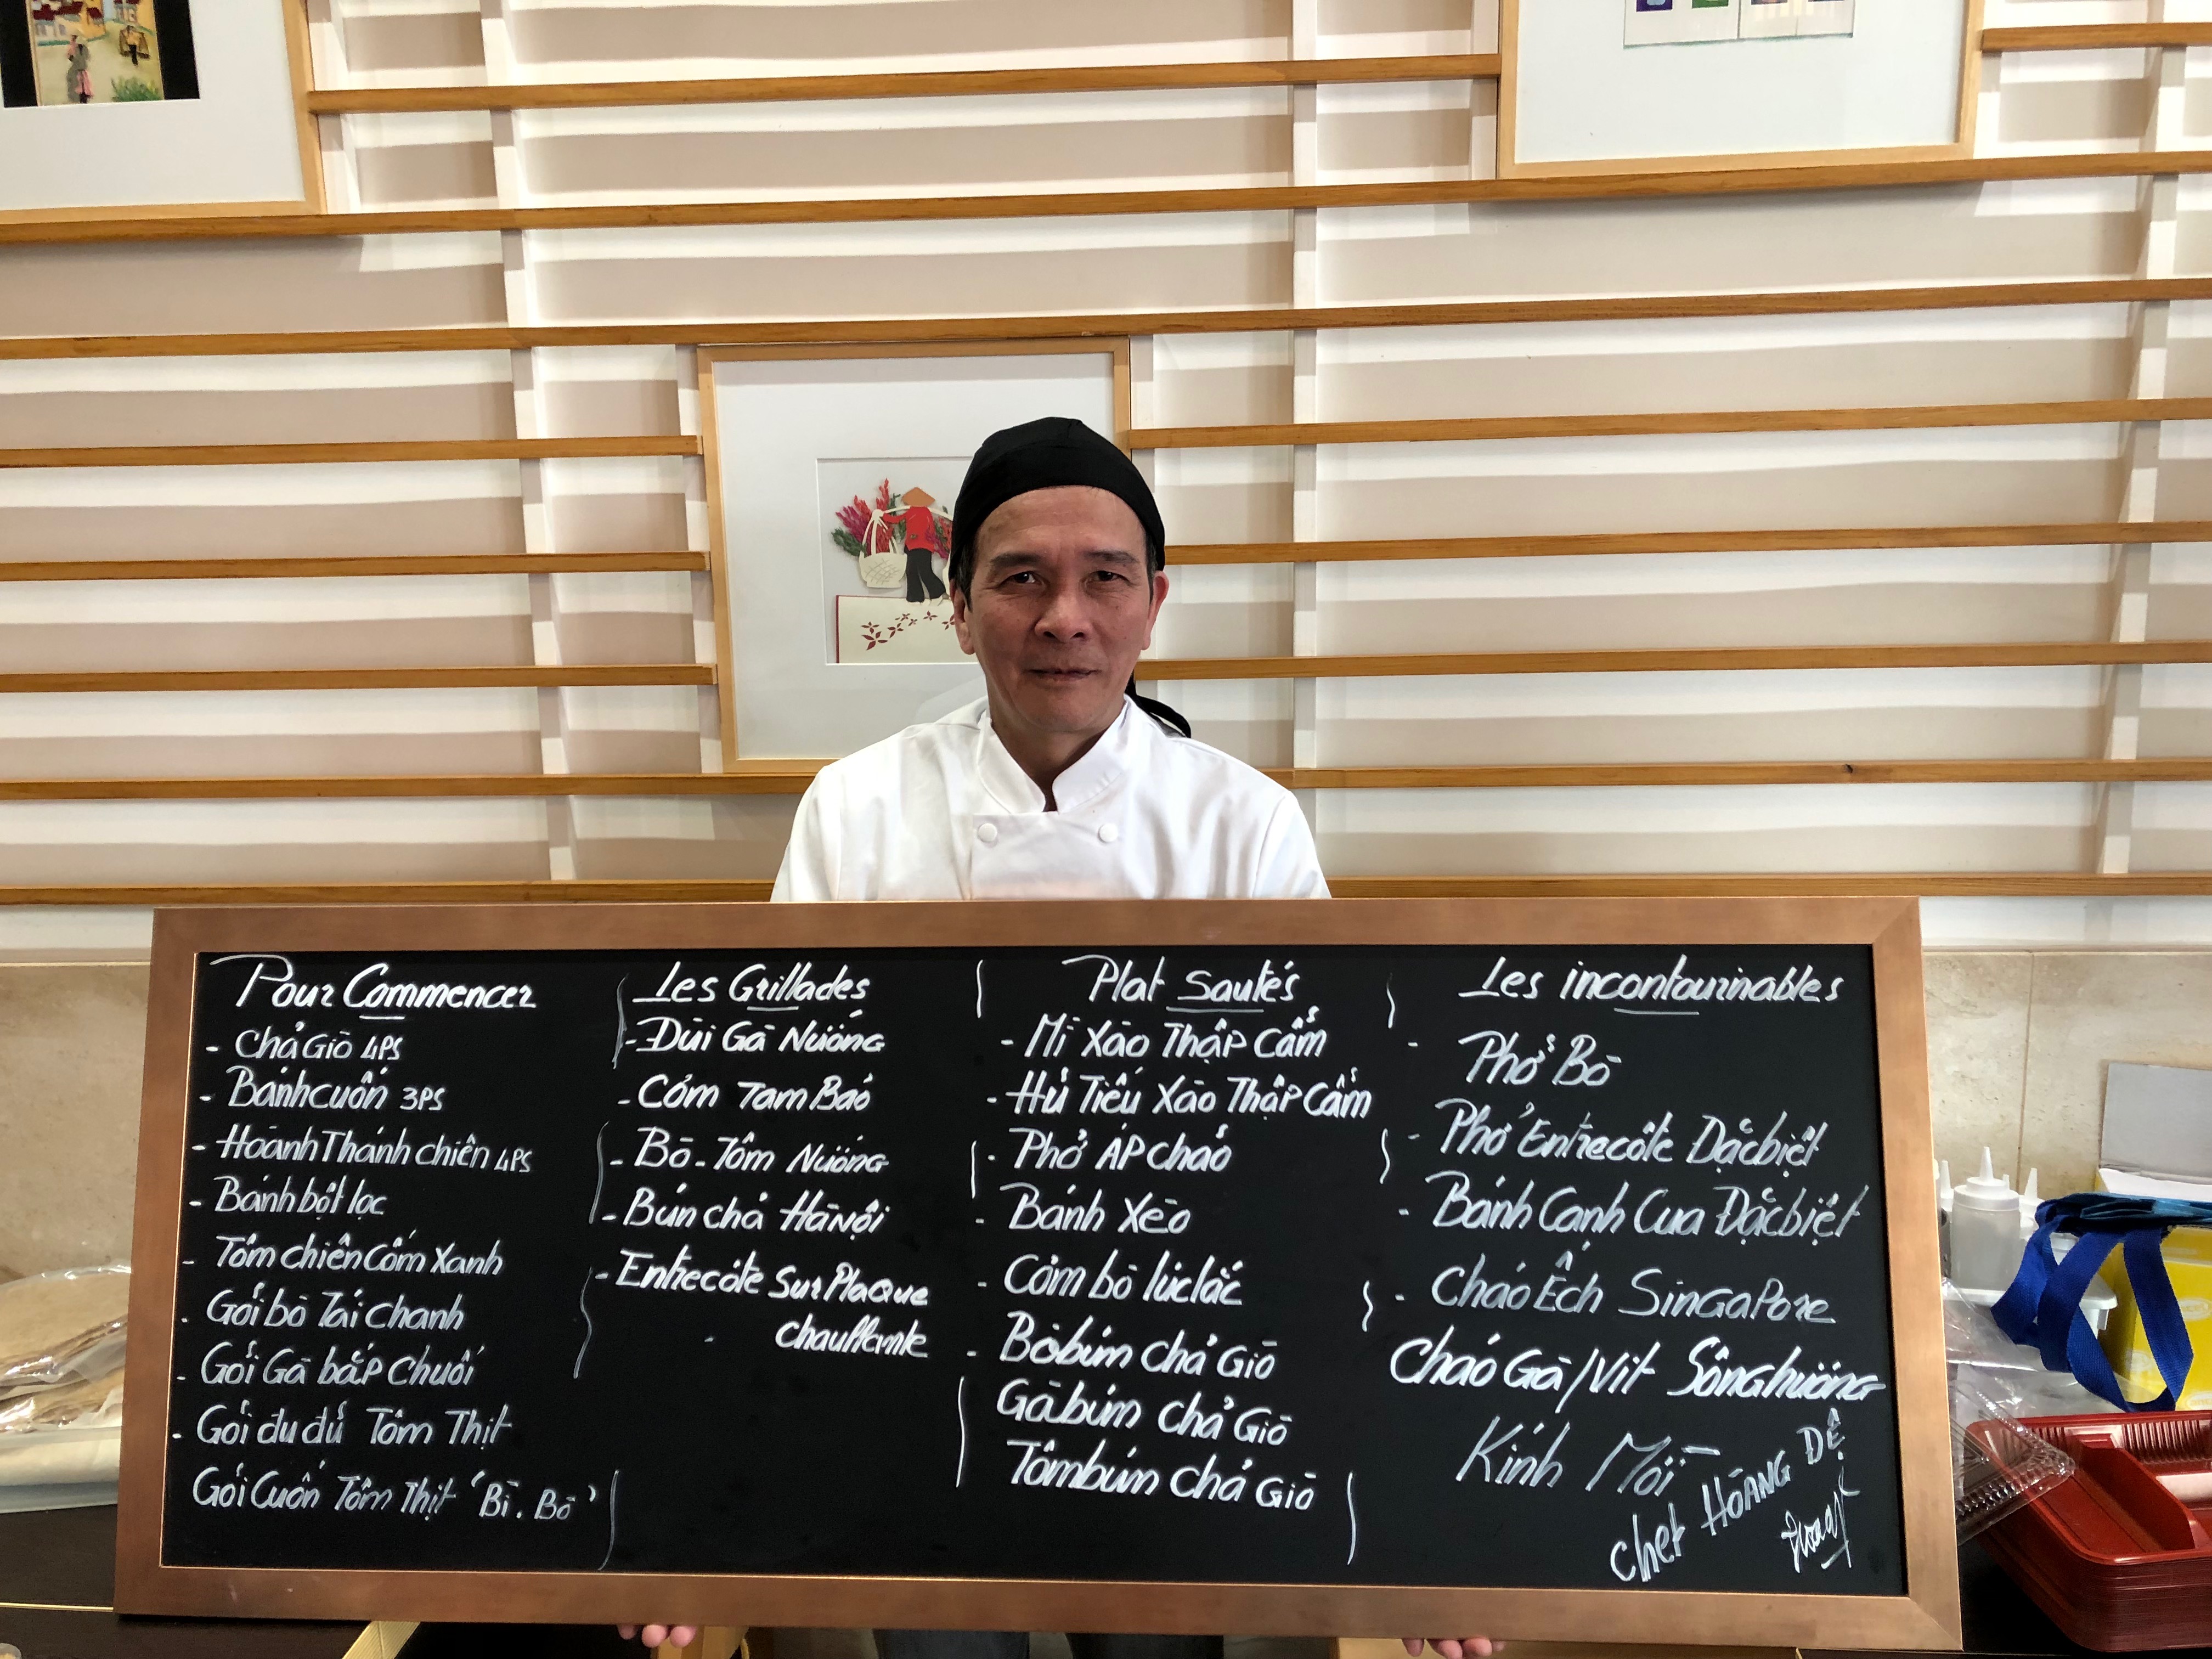 Pour Commencer
- Chả Giò 4PS
- Bánh cuốn 3PS
- Hoành Thánh chiên 4PS
- Bánh bột lọc
- Tôm chiên Cốm Xanh
- Gỏi bò Tái chanh
- Gỏi Gà bắp Chuối
- Gỏi đu đủ Tôm Thịt
Gỏi Cuốn Tôm Thịt 'Bì. Bò'
Les Grillades
- Đùi Gà Nướng
- Cơm Tam Baó
- Bò - Tôm Nướng
- Bún chả Hà Nội
- Entrecôte Sur Plaque
chauffante
Plat Sautés
- Mì Xào Thập Cẩm
- Hủ Tiếu Xào Thập Cẩm
- Phở ÁP chảo
- Bánh Xèo
- Cơm bò lúc lắc
- Bò bún chả Giò
Gà bún chả Giò
Tôm bún chả Giò
Les incontournables
- Phở Bò
- Phở Entrecôte Đặc biệt
- Bánh Canh Cua Đặc biệt
- Cháo Ếch SinGaPore
Cháo Gà / Vịt Sông hương
Kính Mời
chef HOÀNG ĐỆ